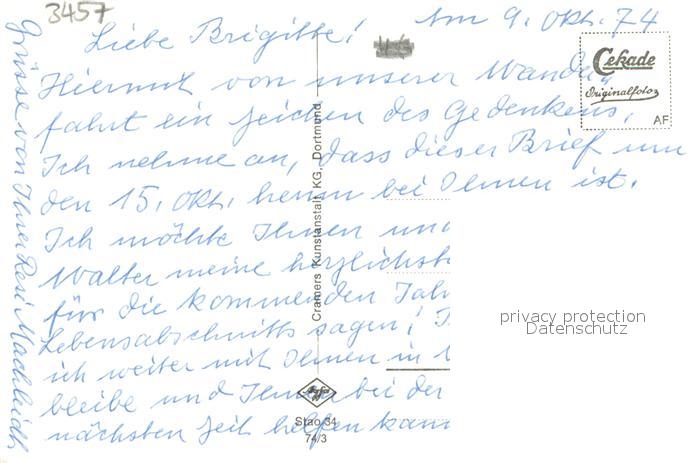 3457
Am 9. Okt. 74
Liebe Brigitte!
Hiermit von unserer Wander„
fahrt ein Zeichen des Gedenkens,
Ich nehme an, dass dieser Brief um
den 15. Okt. herum bei Ihnen ist.
Ich möchte Ihnen und
Walter meine herzlichst
für die kommenden Jah
Lebensabschnitts sagen!
ich weiter mit Ihnen in
bleibe und Ihnen bei der
nächsten Zeit helfen kann
Grüsse von Ihrer Resi Machleidt
Cekade
Originalfoto
AF
Cramers Kunstanstalt KG, Dortmund
Agfa
Stao 34
74/3
privacy protection
Datenschutz